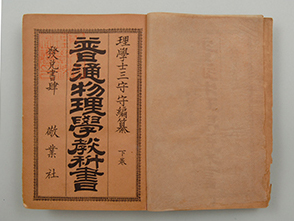 理學士三守守編纂
下卷
普通物理學教科書
發兌書肆 敬業社